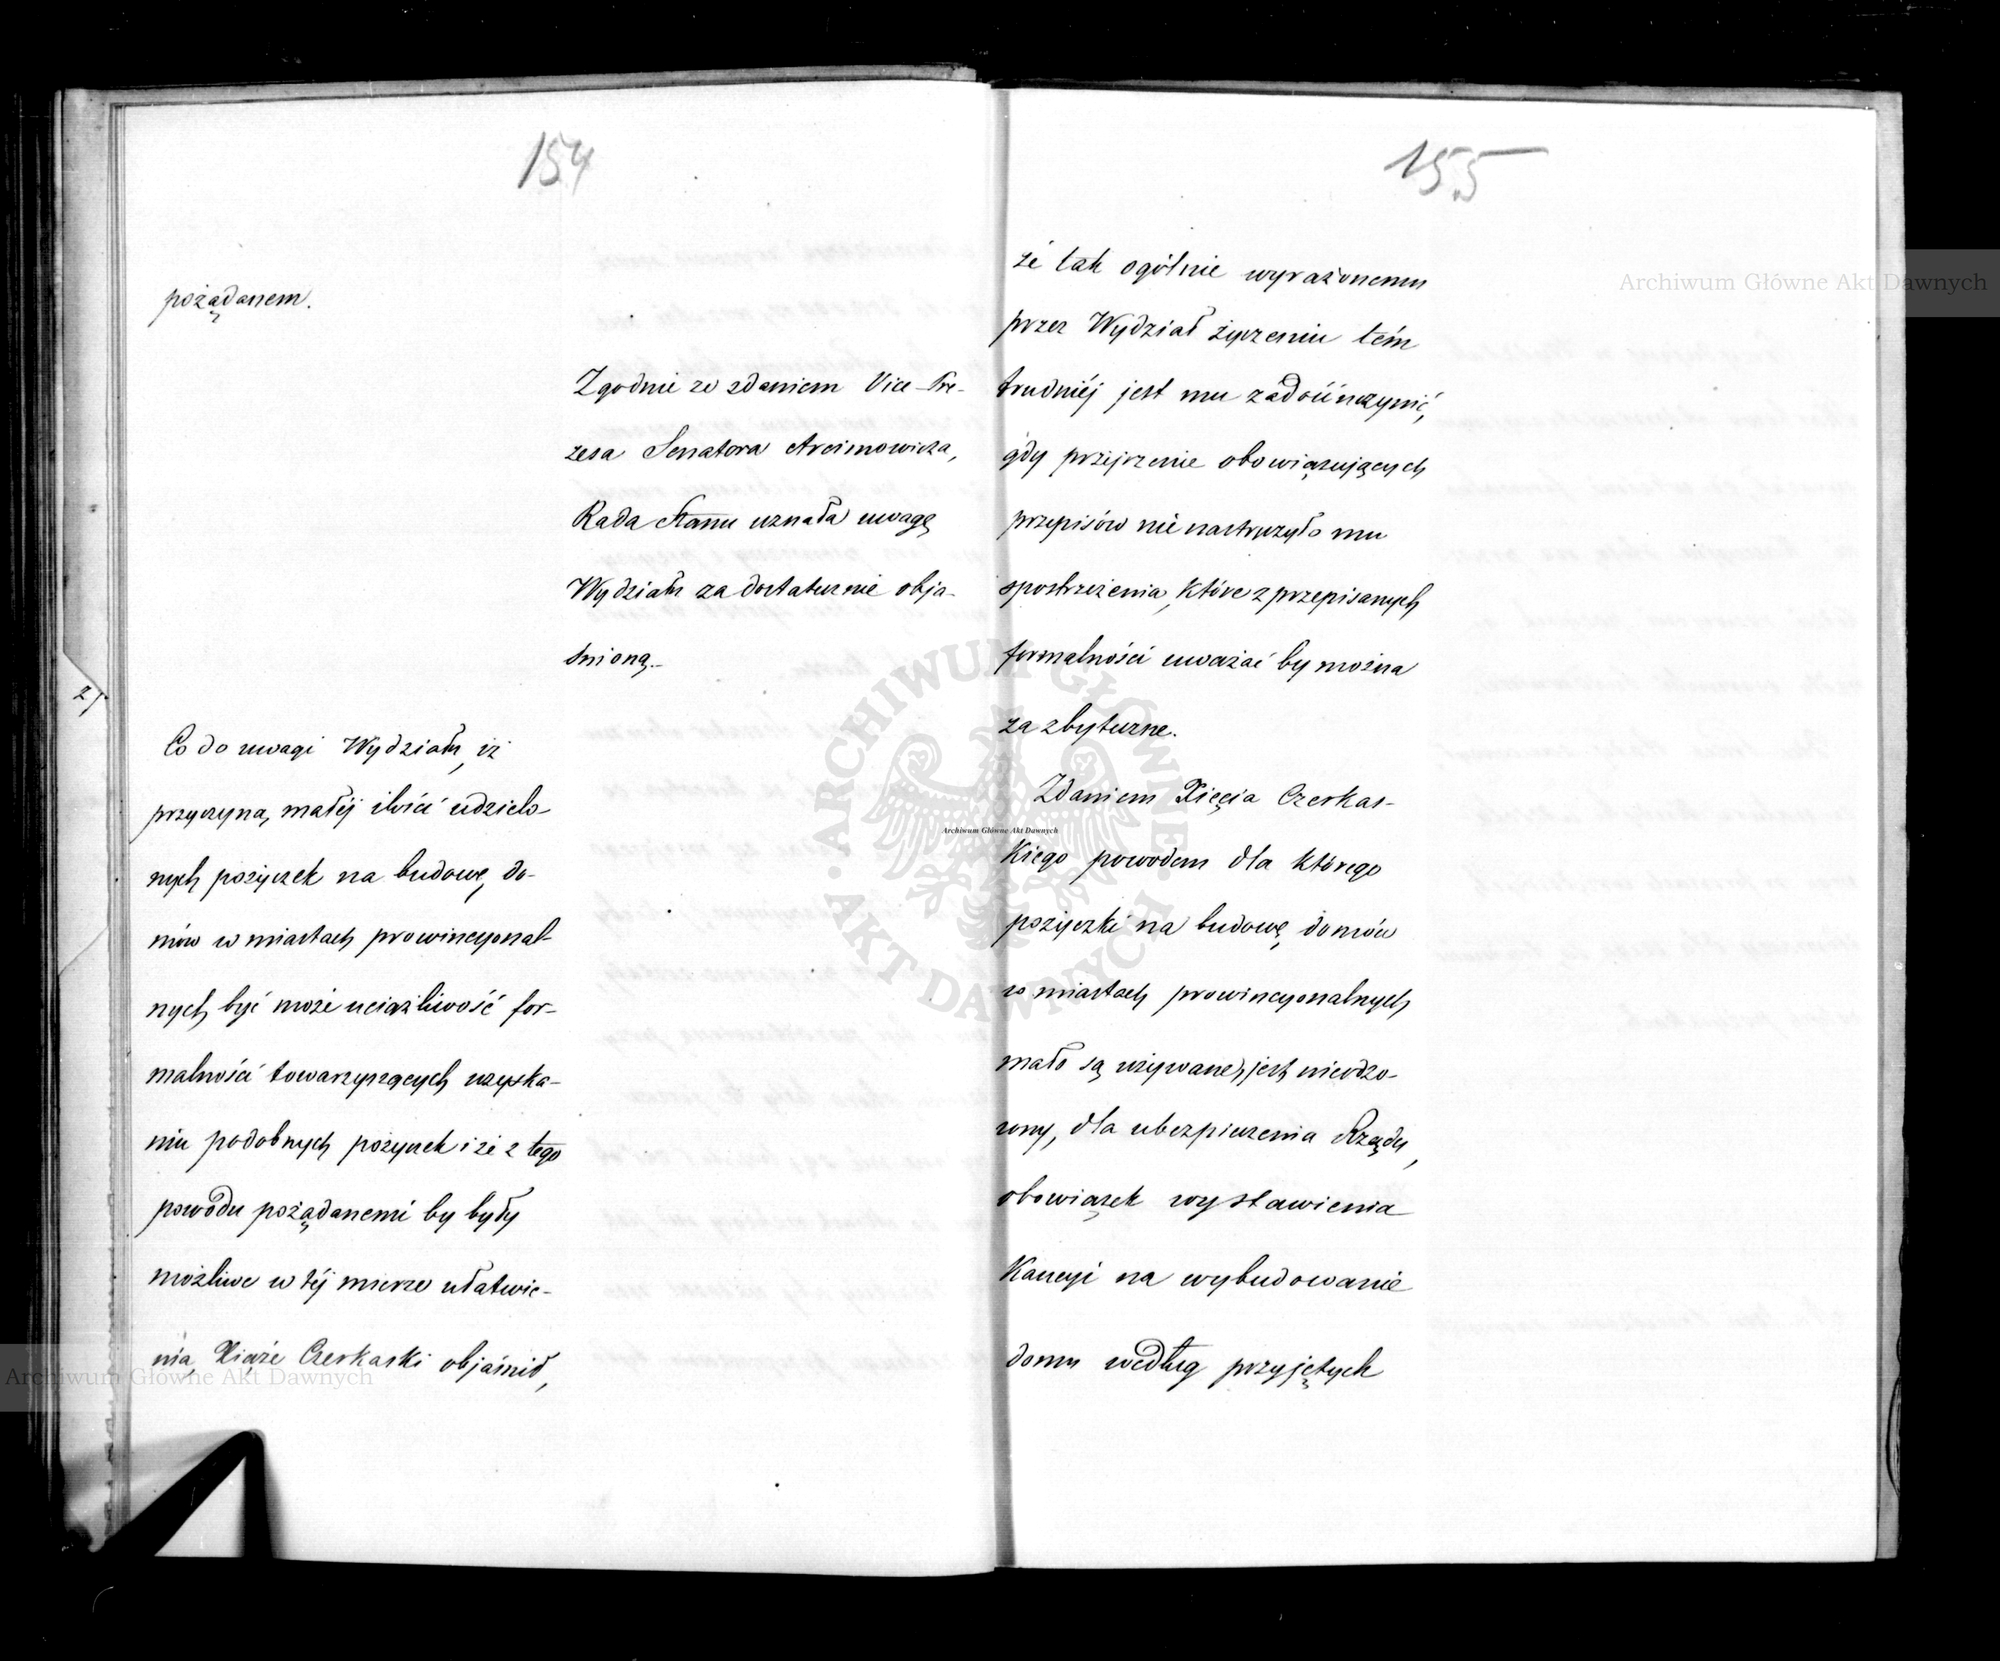 154
pożądanem.
Zgodnie ze zdaniem Vice-Pre-
zesa Senatora Arcimowicza,
Rada Stanu uznała uwagę
Wydziału za dostatecznie obja-
śnioną.-
2/
Co do uwagi Wydziału, iż
przyczyną, małéj ilości udzielo-
nych pożyczek na budowę, do-
mów w miastach prowincyonal-
nych być może uciążliwość for-
malności towarzyszących uzyska-
niu podobnych pożyczek i że z tego
powodu pożądanemi by były
możliwe w téj mierze ułatwie-
nia, Xiąże Czerkaski objaśnił,
155
że tak ogólnie wyrażonemu
przez Wydział życzeniu tém
trudniéj jest mu zadośćuczynić,
gdy przejrzenie obowiązujących
przepisów nie nastręczyło mu
spostrzeżenia, które z przepisanych
formalności uważać by można
za zbyteczne.
Zdaniem Xięcia Czerkas-
kiego powodem dla którego
pożyczki na budowę, domów
w miastach prowincyonalnych
mało są używane, jest nieodzo-
wny, dla ubezpieczenia Rządu,
obowiązek wystawienia
Kaucyi na wybudowanie
domu według przyjętych
Archiwum Główne Akt Dawnych
Archiwum Główne Akt Dawnych
Archiwum Główne Akt Dawnych
ARCHIWUM GŁÓWNE AKT DAWNYCH